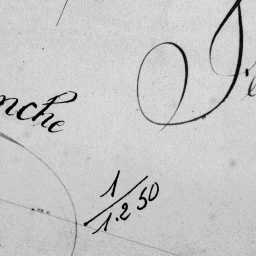 nche
1/1.250